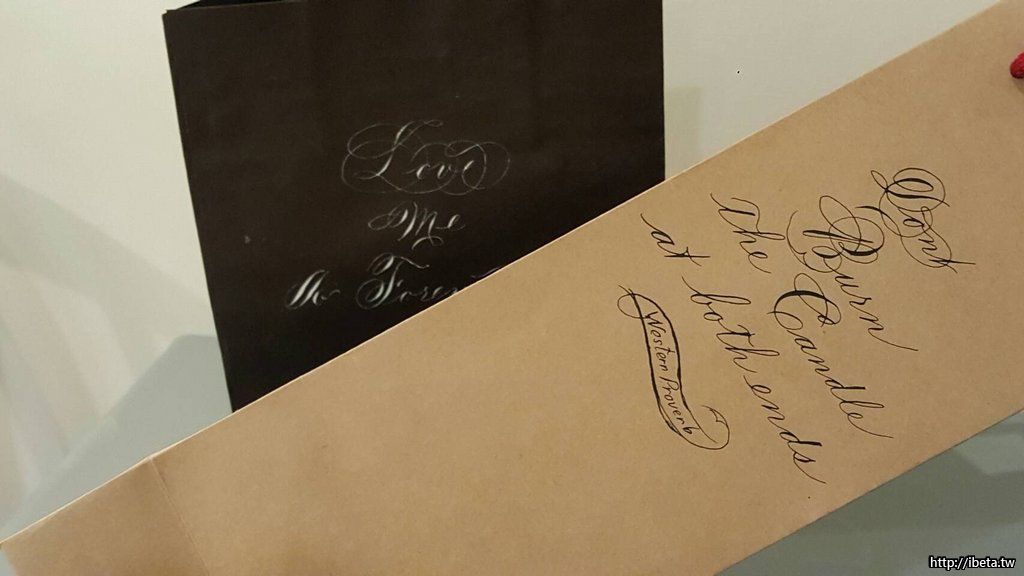 Love
Me
Dont
Burn
The Candle
at both ends
Western Proverb
http://ibeta.tw